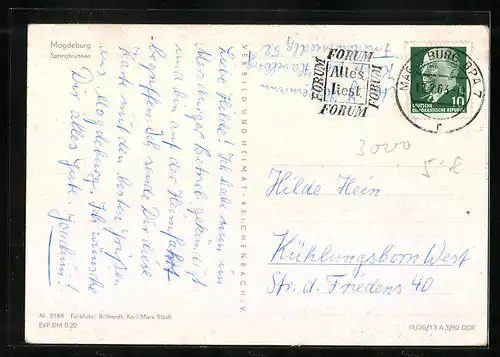 Magdeburg
Springbrunnen
Liebe Hilde! Ich habe nun im
Merseburger Betrieb gekündigt
und bin auf der Heimfahrt
begriffen. Ich sende Dir diese
Karte mit den besten Grüßen
aus Magdeburg. Ich wünsche
Dir alles Gute. Joachim!
Nr. 2184 Farbfoto: Billhardt, Karl-Marx-Stadt
EVP DM 0.20
VEB BILD UND HEIMAT REICHENBACH I. V.
FORUM
FORUM
Altes
Nest
FORUM
FORUM
MERSEBURG
7
r
DEUTSCHE
DEMOKRATISCHE REPUBLIK
10
3000
Hilde Hein
Kühlungsborn West
Str. d. Friedens 40
III/26/13 A 3/62 DDR